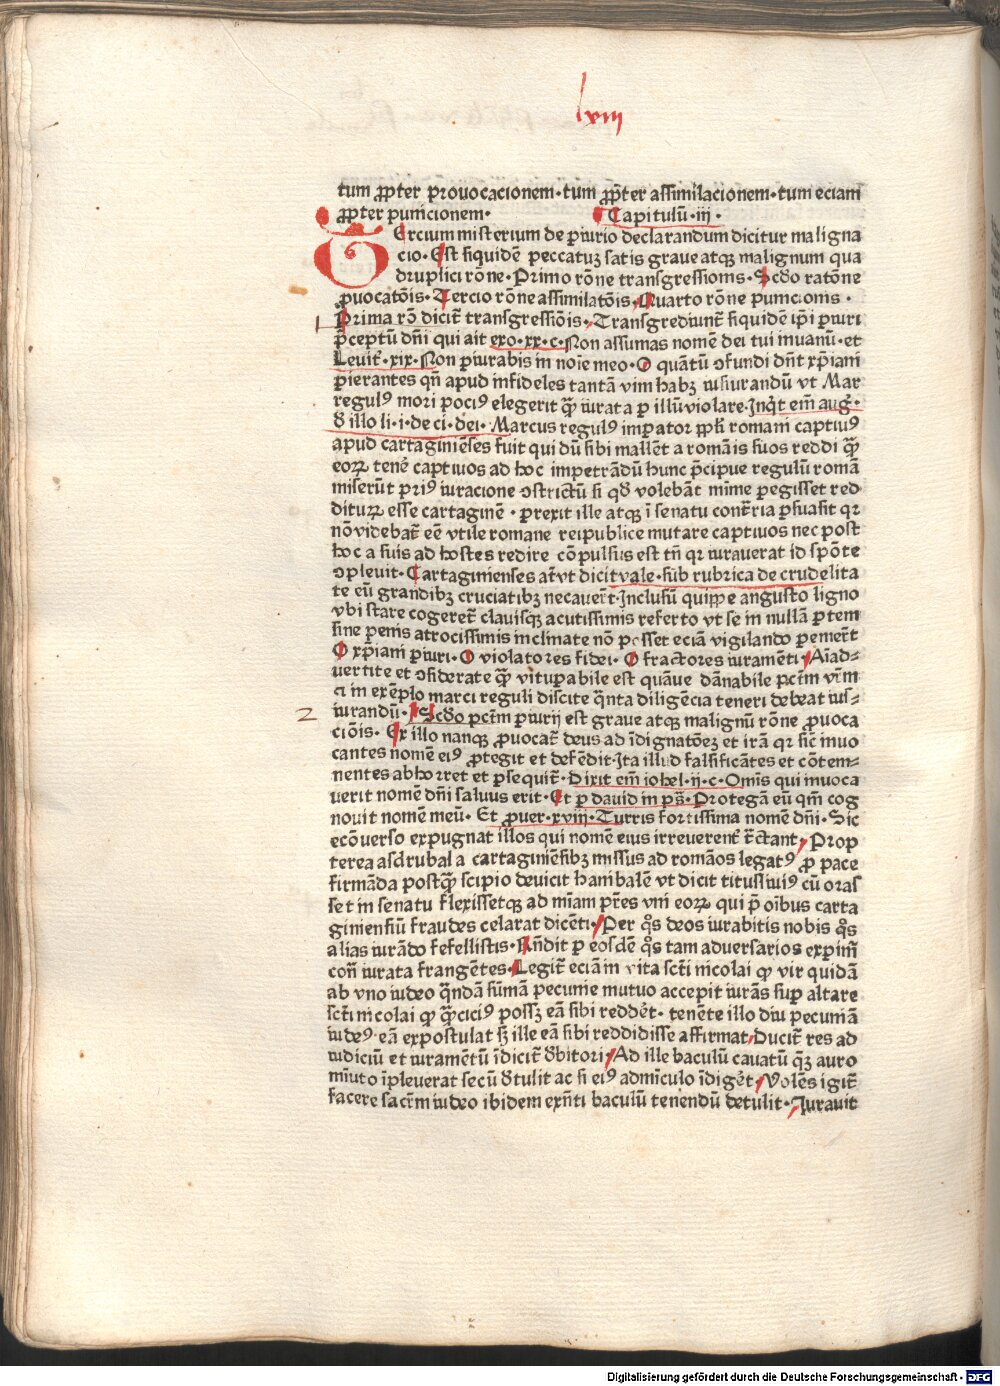 lxiii
tum ꝓpter prouocacionem·tum ꝓpter assimilacionem·tum eciam
ꝓpter punicionem· Capitulū·iij·
Tercium misterium de ꝑiurio declarandum dicitur maligna
cio·Est siquidē peccatuꝫ satis graue atqꝫ malignum qua
druplici rōne·Primo rōne transgressionis·Scďo ratōne
ꝓuocatōis·Tercio rōne assimilatōis·Quarto rōne punicionis·
Prima rō dicit̄ transgressiōis·Transgrediunt̄ siquidē ip̄i ꝑiuri
p̄ceptū dn̄i qui ait exo·xx·c·Non assumas nomē dei tui inuanū·et
Leuit̄·xix·Non ꝑiurabis in noīe meo·O quātū ꝯfundi dn̄t xp̄iani
peierantes qn̄ apud infideles tantā vim habꝫ iusiurandū vt Mar
regulꝰ mori pociꝰ elegerit q̄ꝫ iurata ꝑ illū violare·Inq̇t em̄ aug̉·
ď illo li·i·de ci·dei·Marcus regulꝰ imꝑator ꝓp̄li romani captiuꝰ
apud cartaginēses fuit qui dū sibi mallēt a romāis suos reddi q̄ꝫ
eoꝝ tenē captiuos ad hoc impetrādū hunc p̄cipue regulū romā
miserūt priꝰ iuracione ꝯstrictū si qď volebāt mīme ꝑegisset red
dituꝝ esse cartaginē·ꝑrexit ille atqꝫ ī senatu cont̄ria ꝑsuasit qꝛ
nō videbat̄ eē vtile romane reipublice mutare captiuos nec post
hoc a suis ad hostes redire cōpulsus est tn̄ qꝛ iurauerat id spōte
ꝯpleuit·Cartaginienses at̄ vt dicit vale·sub rubrica de crudelita
te eū grandibꝫ cruciatibꝫ necauer̄t·Inclusū quippe angusto ligno
vbi stare cogeret̄ clauisqꝫ acutissimis referto vt se in nullā ꝑtem
sine penis atrocissimis inclinate nō posset eciā vigilando ꝑemer̄t
O xp̄iani ꝑiuri·O violatores fidei·O fractores iuramēti·Aīad⸗
uertite et ꝯsiderate q̄ꝫ vituꝑabile est quāue dānabile pctm̄ vr̄m
ci in exēplo marci reguli discite q̄nta diligēcia teneri debeat ius⸗
iurandū· Scďo pctm̄ ꝑiurij est graue atqꝫ malignū rōne ꝓuoca
ciōis·Ex illo nanqꝫ ꝓuocat̄ deus ad īdignatōeꝫ et irā qꝛ sic̄ inuo
cantes nomē eiꝰ ꝓtegit et defēdit·Ita illud falsificātes et cōtem⸗
nentes abhorret et ꝑsequit̄·Dixit em̄ iohel·ij·c·Omīs qui inuoca
uerit nomē dn̄i saluus erit·Et ꝑ dauid in ps̄·Protegā eū qm̄ cog
nouit nomē meū·Et ꝓuer·xviij·Turris fortissima nomē dn̄i·Sic
ecōuerso expugnat illos qui nomē eius irreuerent̄ tr̄ctant·Prop
terea asdrubal a cartaginiēsibꝫ missus ad romāos legatꝰ ꝓ pace
firmāda postq̄ꝫ scipio deuicit hanibalē vt dicit titusliuiꝰ cū oras
set in senatu flexissetqꝫ ad miam pr̄es vni eoꝝ qui p̄ oibus carta
giniensiū fraudes celarat dicēti·Per q̊s deos iurabitis nobis q̊s
alias iurādo fefellistis·Rn̄dit ꝑ eosdē q̊s tam aduersarios exꝑim̄
con̄ iurata frangētes·Legit̄ eciā in vita scti nicolai ꝙ vir quidā
ab vno iudeo q̄ndā sūmā pecunie mutuo accepit iurās suꝑ altare
scti nicolai ꝙ q̄ꝫciciꝰ possꝫ eā sibi redde̅t·tenēte illo diu pecuniā
iudeꝰ eā expostulat sꝫ ille eā sibi reddidisse affirmat·Ducit̄ res ad
iudiciū et iuramētū īdicit̄ ďbitori·Ad ille baculū cauatū q̄ꝫ auro
mīuto īpleuerat secū ďtulit ac si eiꝰ admīculo īdiget·Volēs igit̄
facere sacr̄m iudeo ibidem exn̄ti baculū tenendū detulit·Iurauit
1
2
Digitalisierung gefördert durch die Deutsche Forschungsgemeinschaft - DFG